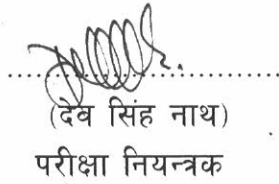 (देव सिंह नाथ)
परीक्षा नियन्त्रक